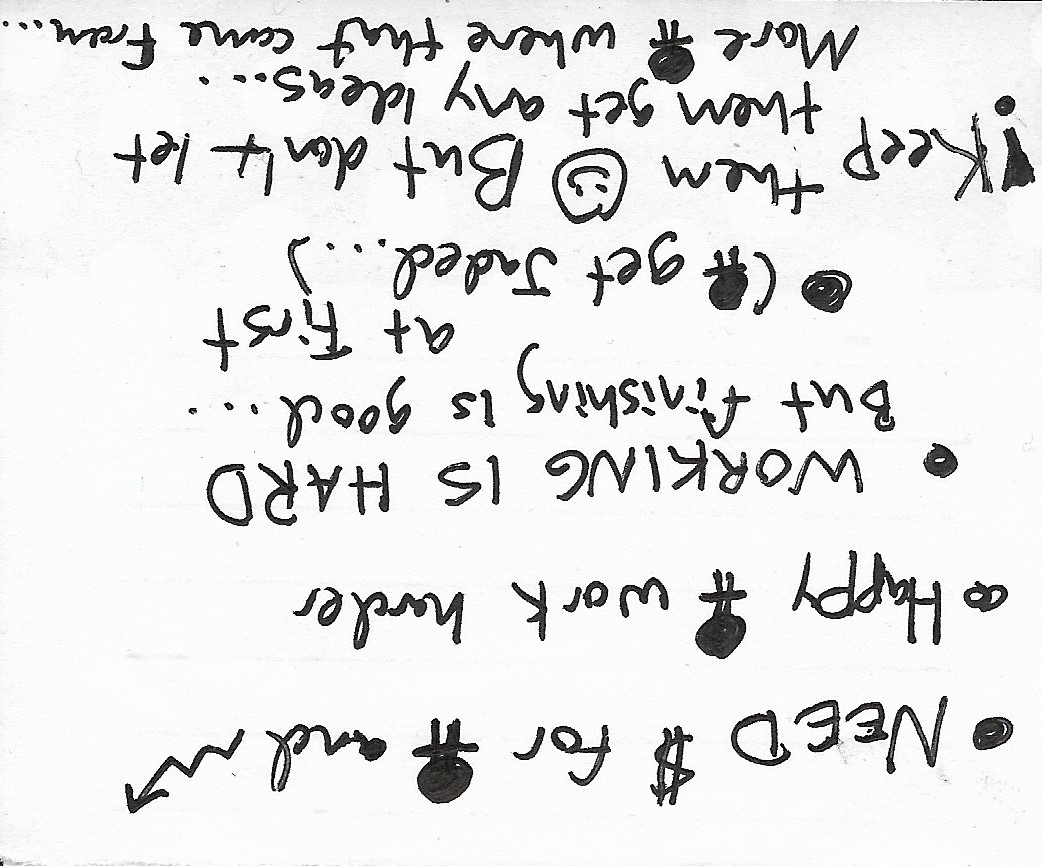 • NEED $ for and
• Happy work harder
• WORKING IS HARD
But finishing is good....
at First
• ( get Jaded...)
! Keep them ☺ But don't let
them get any Ideas...
More where that came From...